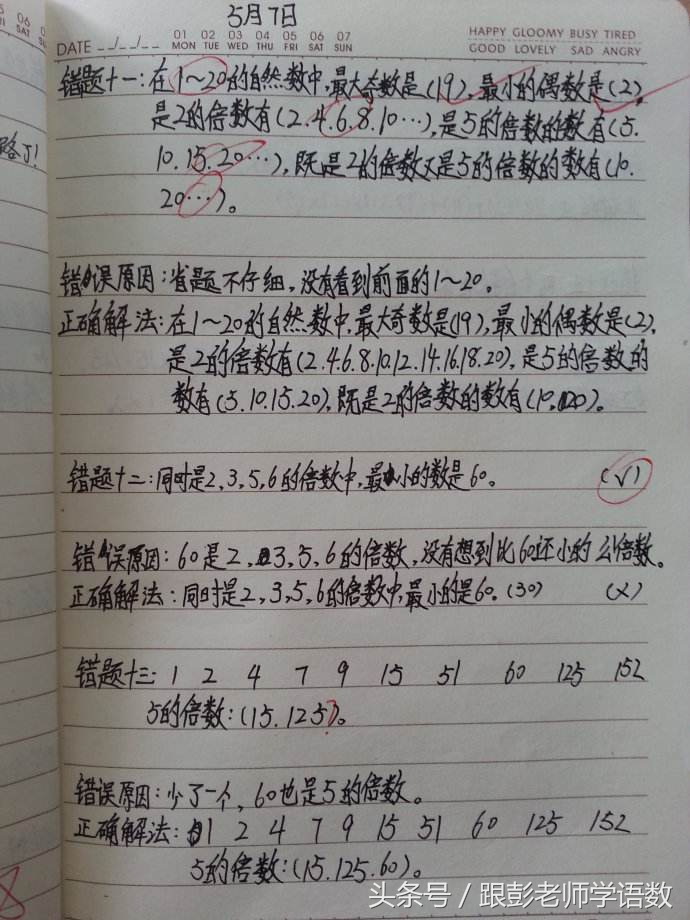 5月7日
DATE __/__/__
01 02 03 04 05 06 07
MON TUE WED THU FRI SAT SUN
HAPPY GLOOMY BUSY TIRED
GOOD LOVELY SAD ANGRY
错题十一:在1~20的自然数中,最大奇数是(19),最小的偶数是(2),
是2的倍数有(2.4.6.8.10…),是5的倍数的数有(5.
10.15.20…),既是2的倍数又是5的倍数的数有(10.
20…)。
错误原因:省题不仔细,没有看到前面的1~20。
正确解法:在1~20的自然数中,最大奇数是(19),最小的偶数是(2),
是2的倍数有(2.4.6.8.10.12.14.16.18.20),是5的倍数的
数有(5.10.15.20),既是2的倍数的数有(10.20)。
错题十二:同时是2,3,5,6的倍数中,最小的数是60。 (√)
错误原因:60是2,3,5,6的倍数,没有想到比60还小的公倍数。
正确解法:同时是2,3,5,6的倍数中,最小的是60。(30) (×)
错题十三: 1 2 4 7 9 15 51 60 125 152
5的倍数:(15.125)。
错误原因:少了一个,60也是5的倍数。
正确解法: 1 2 4 7 9 15 51 60 125 152
5的倍数:(15.125.60)。
头条号 / 跟彭老师学语数